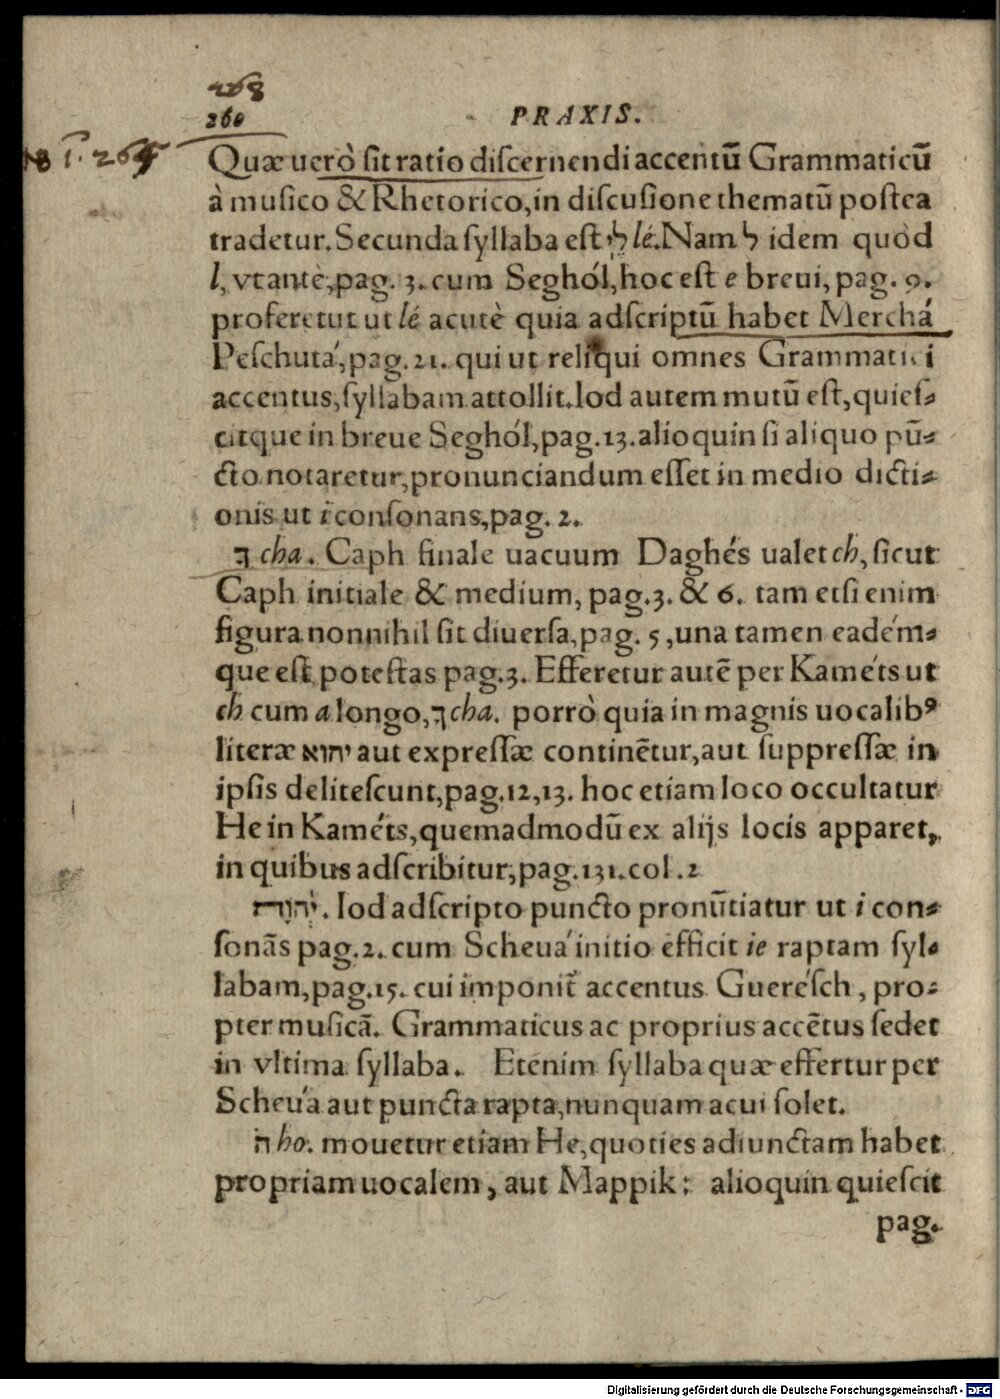 268
260 PRAXIS.
NB i. 264
Quæ uerò sit ratio discernendi accentū Grammaticū
à musico & Rhetorico, in discusione thematū postea
tradetur. Secunda syllaba est לֶי lé. Nam ל idem quòd
l, vt antè, pag. 3. cum Seghól, hoc est e breui, pag. 9.
proferetur ut lé acutè quia adscriptū habet Merchá
Peschutá, pag. 21. qui ut reliqui omnes Grammatici
accentus, syllabam attollit. Iod autem mutū est, quies-
citque in breue Seghól, pag. 13. alioquin si aliquo pū-
cto notaretur, pronunciandum esset in medio dicti-
onis ut i consonans, pag. 2.
ךָ cha. Caph finale uacuum Daghés ualet ch, sicut
Caph initiale & medium, pag. 3. & 6. tam etsi enim
figura nonnihil sit diuersa, pag. 5, una tamen eadém-
que est potestas pag. 3. Efferetur autē per Kaméts ut
ch cum a longo, ךָ cha. porrò quia in magnis uocalibꝰ
literæ יהוא aut expressæ continētur, aut suppressæ in
ipsis delitescunt, pag. 12, 13. hoc etiam loco occultatur
He in Kaméts, quemadmodū ex alijs locis apparet,
in quibus adscribitur, pag. 131. col. 2
יְהֹוָה. Iod adscripto puncto pronūtiatur ut i con-
sonās pag. 2. cum Scheuá initio efficit ie raptam syl-
labam, pag. 15. cui imponit̃ accentus Guerésch, pro-
pter musicā. Grammaticus ac proprius accētus sedet
in vltima syllaba. Etenim syllaba quæ effertur per
Scheúa aut puncta rapta, nunquam acui solet.
הֹ ho. mouetur etiam He, quoties adiunctam habet
propriam uocalem, aut Mappik: alioquin quiescit
pag.
Digitalisierung gefördert durch die Deutsche Forschungsgemeinschaft - DFG